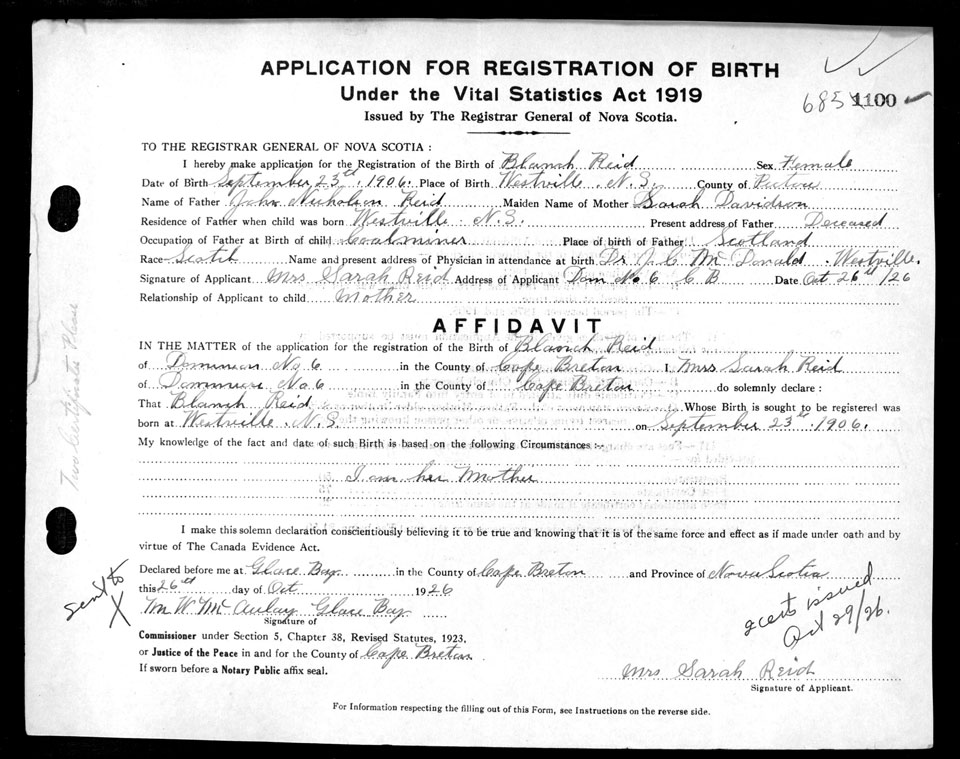 APPLICATION FOR REGISTRATION OF BIRTH
Under the Vital Statistics Act 1919
685 1100
Issued by The Registrar General of Nova Scotia.
TO THE REGISTRAR GENERAL OF NOVA SCOTIA :
I hereby make application for the Registration of the Birth of Blanch Reid Sex Female
Date of Birth September 23rd. 1906. Place of Birth Westville. N.S. County of Pictou
Name of Father John Nicholson Reid Maiden Name of Mother Sarah Davidson
Residence of Father when child was born Westville. N.S. Present address of Father Deceased
Occupation of Father at Birth of child Coalminer Place of birth of Father Scotland
Race Scotch Name and present address of Physician in attendance at birth Dr. J. C. McDonald. Westville.
Signature of Applicant Mrs Sarah Reid Address of Applicant Dom No 6 C B Date Oct 26th/26
Relationship of Applicant to child Mother
AFFIDAVIT
IN THE MATTER of the application for the registration of the Birth of Blanch Reid
of Dominion No 6 in the County of Cape Breton I Mrs Sarah Reid
of Dominion No. 6 in the County of Cape Breton do solemnly declare :
That Blanch Reid Whose Birth is sought to be registered was
born at Westville. N.S. on September 23rd. 1906.
My knowledge of the fact and date of such Birth is based on the following Circumstances :-
I am her Mother
I make this solemn declaration conscientiously believing it to be true and knowing that it is of the same force and effect as if made under oath and by
virtue of The Canada Evidence Act.
Declared before me at Glace Bay in the County of Cape Breton and Province of Nova Scotia
this 26th day of Oct 1926
M W McAulay Glace Bay
Signature of
Commissioner under Section 5, Chapter 38, Revised Statutes, 1923,
or Justice of the Peace in and for the County of Cape Breton
If sworn before a Notary Public affix seal.
sent to
X
2 certs issued
Oct 29/26.
Mrs Sarah Reid
Signature of Applicant.
For Information respecting the filling out of this Form, see Instructions on the reverse side.
Two Certificates Please